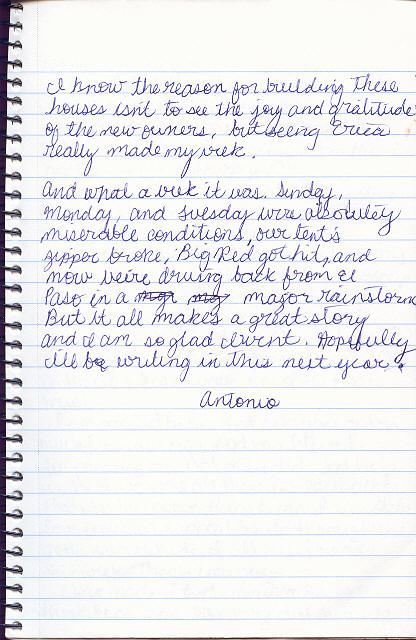 I know the reason for building these
houses isn't to see the joy and gratitude
of the new owners, but seeing Erica
really made my week.
And what a week it was. Sunday,
Monday, and Tuesday were absolutely
miserable conditions, our tent's
zipper broke, Big Red got hit, and
now we're driving back from El
Paso in a major rainstorm.
But it all makes a great story
and I am so glad I went. Hopefully
I'll be writing in this next year.
Antonio